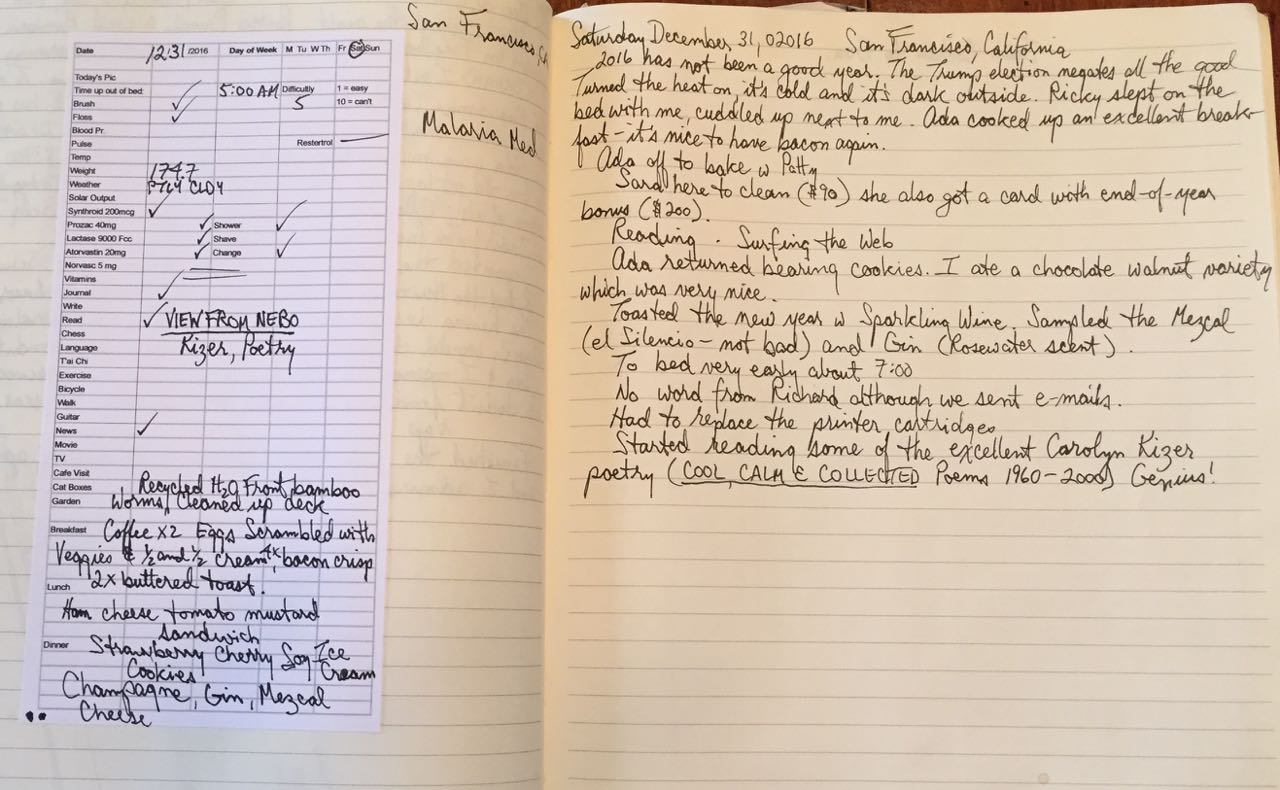 San Francisco, CA
Malaria Med
Date 12/31/2016 Day of Week M Tu W Th Fr Sat Sun
Today's Pic
Time up out of bed: 5:00 AM Difficultly 5 1 = easy
Brush 10 = can't
Floss
Blood Pr.
Pulse Restertrol
Temp
Weight 174.7
Weather PTLY CLDY
Solar Output
Synthroid 200mcg
Prozac 40mg Shower
Lactase 9000 Fcc Shave
Atorvastin 20mg Change
Norvasc 5 mg
Vitamins
Journal
Write
Read VIEW FROM NEBO
Chess Kizer, Poetry
Language
T'ai Chi
Exercise
Bicycle
Walk
Guitar
News
Movie
TV
Cafe Visit
Cat Boxes Recycled H2O Front, bamboo
Garden Worms, Cleaned up deck
Breakfast Coffee X2 Eggs Scrambled with
Veggies & 1/2 and 1/2 cream, 4x bacon crisp
2x buttered toast.
Lunch
Ham cheese tomato mustard
sandwich
Dinner Strawberry Cherry Soy Ice
Cookies Cream
Champagne, Gin, Mezcal
Cheese
Saturday December 31, 02016 San Francisco, California
2016 has not been a good year. The Trump election negates all the good
Turned the heat on, it's cold and it's dark outside. Ricky slept on the
bed with me, cuddled up next to me. Ada cooked up an excellent break-
fast - it's nice to have bacon again.
Ada off to bake w Patty
Sara here to clean ($90) she also got a card with end-of-year
bonus ($200).
Reading. Surfing the Web
Ada returned bearing cookies. I ate a chocolate walnut variety
which was very nice.
Toasted the new year w Sparkling Wine, Sampled the Mezcal
(el Silencio - not bad) and Gin (Rosewater scent).
To bed very early about 7:00
No word from Richard although we sent e-mails.
Had to replace the printer cartridges
Started reading some of the excellent Carolyn Kizer
poetry (COOL, CALM & COLLECTED Poems 1960-2000) Genius!